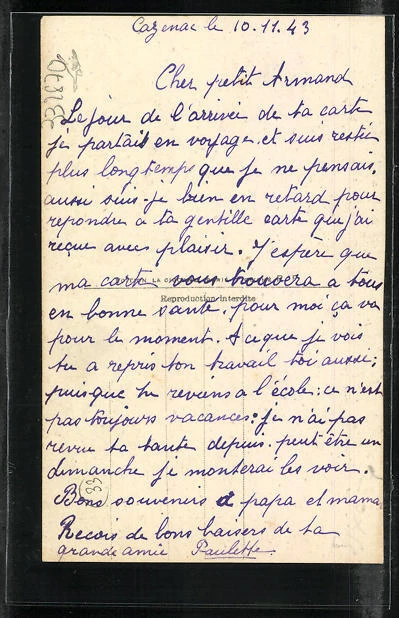 Cazenac le 10.11.43
Cher petit Armand
Le jour de l'arrivée de ta carte
je partais en voyage et suis restée
plus longtemps que je ne pensais,
aussi suis-je bien en retard pour
repondre a ta gentille carte que j'ai
reçue avec plaisir. J'espère que
ma carte vous trouvera a tous
Reproduction interdite
en bonne santé, pour moi ça va
pour le moment. A ce que je vois
tu a repris ton travail toi aussi,
puisque tu reviens a l'école; ce n'est
pas toujours vacances; je n'ai pas
revu ta tante depuis. peut être un
dimanche je monterai les voir.
Bons souvenirs à papa et mama
33
Recois de bons baisers de ta
grande amie Paulette.